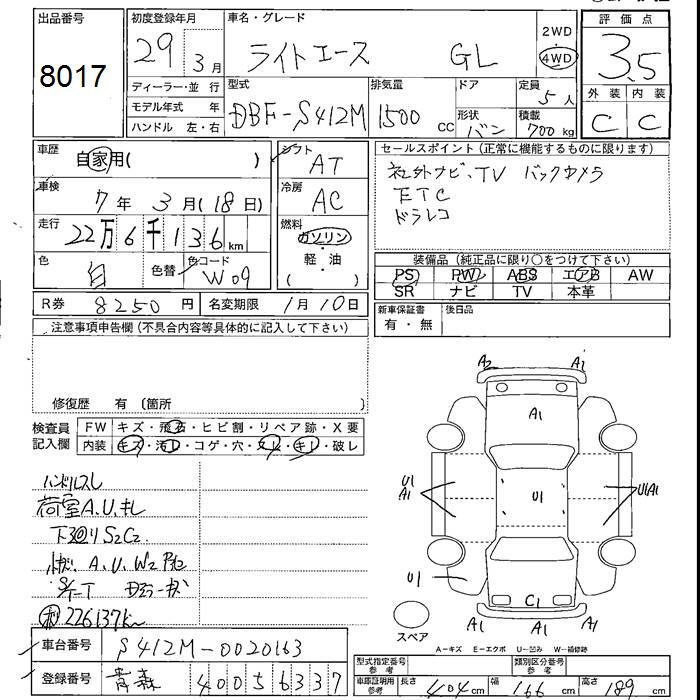 出品番号
8017
初度登録年月
29年 3月
車名・グレード
ライトエース GL
2WD
4WD
評価点
3.5
外装 内装
C C
ディーラー・並 行
モデル年式 年
ハンドル 左・右
型式
DBF-S412M
排気量
1500 cc
ドア
形状
バン
定員
5人
積載
700kg
車歴
自家用( )
車検
7年 3月(18日)
走行
22万6千136km
色
白
色替
色コード
W09
シフト
AT
冷房
AC
燃料
ガソリン
・
軽油
( )
セールスポイント(正常に機能するものに限ります)
社外ナビ、TV バックカメラ
ETC
ドラレコ
装備品(純正品に限り○をつけて下さい)
PS PW ABS エアB AW
SR ナビ TV 本革
R券 8250円
名変期限 1月10日
新車保証書
有・無
後日品
注意事項申告欄(不具合内容等具体的に記入して下さい)
修復歴 有 〔箇所 〕
検査員
記入欄
FW キズ・飛石・ヒビ割・リペア跡・X要
内装 キズ・汚レ・コゲ・穴・スレ・キレ・破レ
ハンドルスレ
荷室A.U.キレ
下廻りS2C2
A.U.W2
226137km
A2 A2
A1
U1
A1
U1
U1A1
U1
C1
A1 A1 A1
スペア
A−キズ E−エクボ U−凹み W−補修跡
車台番号 S412M-0020163
登録番号 青森 400 5 6337
型式指定番号
参考
類別区分番号
参考
車庫証明用
参考
長さ 404cm 幅 166cm 高さ 189cm